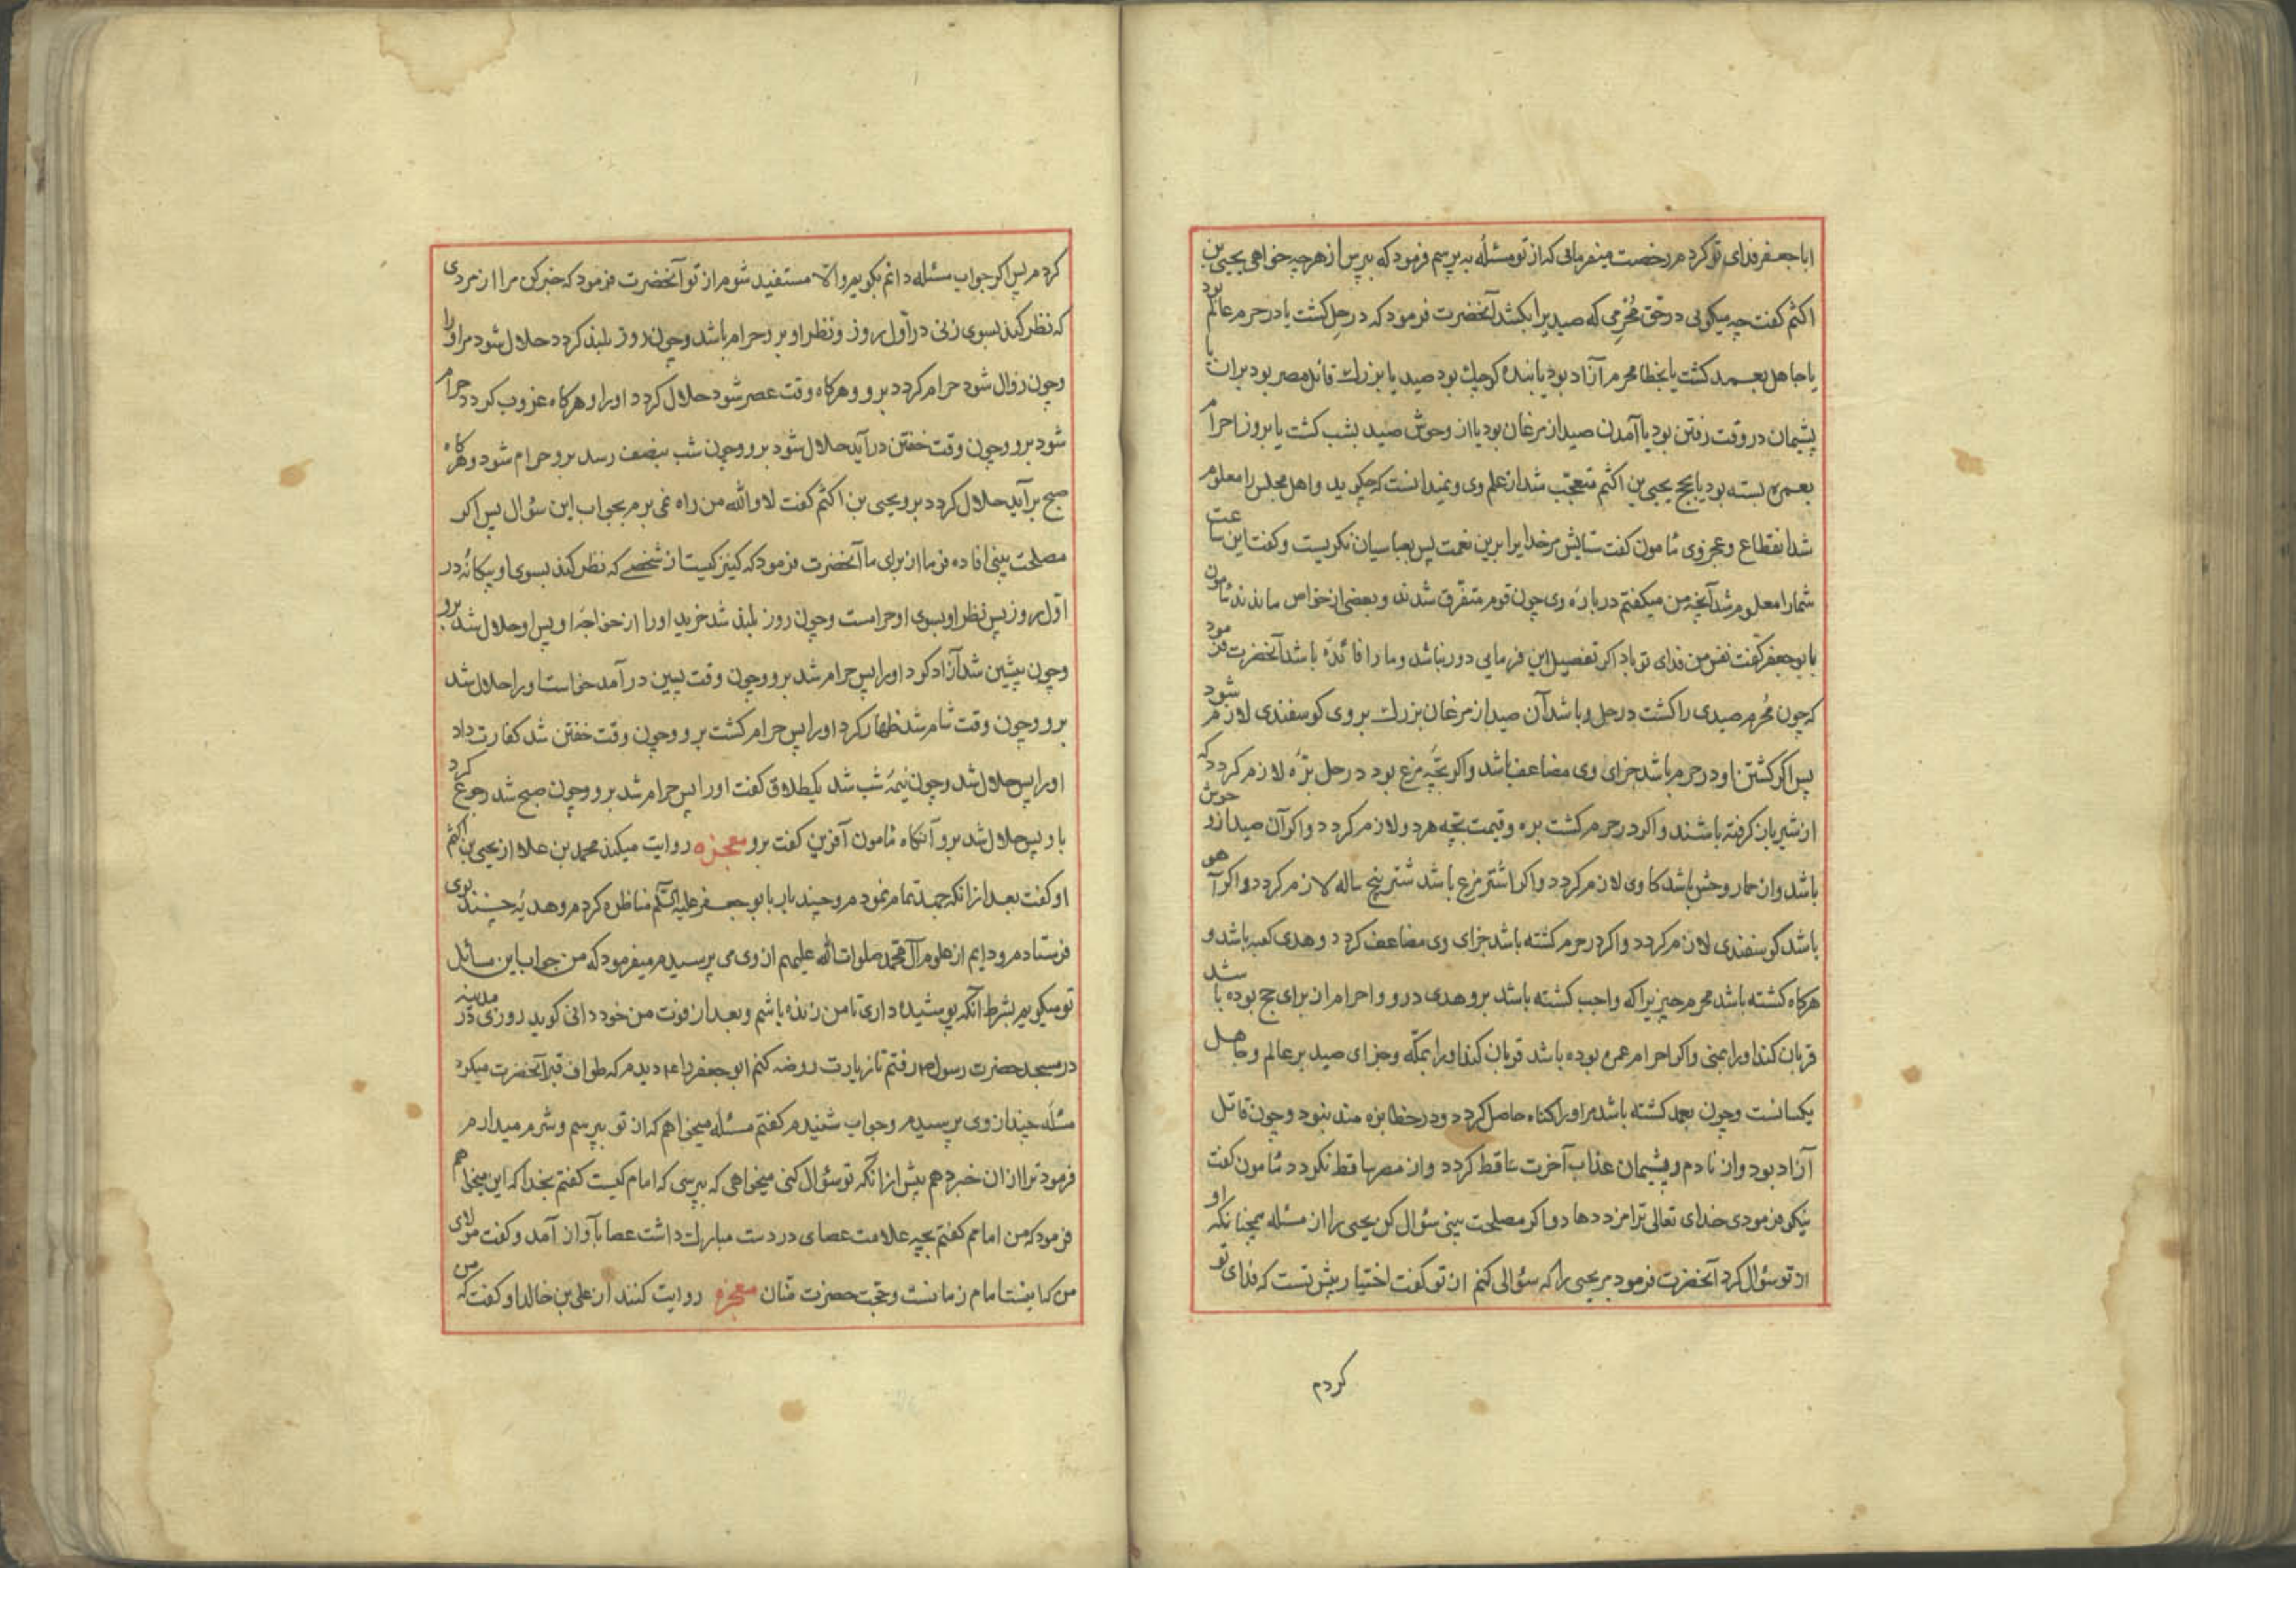 ابا جعفر فدای تو کردم رخصت میفرمائی که از تو مسئلهٔ به پرسم فرمود که بپرس از هر چه خواهی یحیی بن
اکثم کفت چه میکویی در حق مُحرِمی که صید یرا بکشد آنحضرت فرمود که در حِل کشت یا در حرم عالم بود
یا جاهل بعمد کشت یا بخطا محرم آزاد بود یا بنده کوچك بود صید یا بزرك قاتل مصر بود بران یا
پشیمان در وقت رفتن بود یا آمدن صید از مرغان بود یا از وحوش صید بشب کشت یا بروز احرام
بعمره بسته بود یا بحج یحیی بن اکثم متعجّب شد از علم وی و نمیدانست که چکوید و اهل مجلس را معلوم
شد انقطاع و عجز وی مامون کفت ستایش مر خدایرا برین نعمت پس بعباسیان نکریست و کفت این ساعت
شما را معلوم شد آنچه من میکفتم در بارهٔ وی چون قوم متفرق شدند و بعضی از خواص ماندند مامون
با بو جعفر کفت نفس من فدای تو باد اکر تفصیل این فرمایی دور نباشد و ما را فائدهٔ باشد آنحضرت فرمود
که چون مُحرم صیدی را کشت در حل و باشد آن صید از مرغان بزرك بر وی کوسفندی لازم شود
پس اکر کشتن او در حرم باشد جزای وی مضاعف باشد و اکر بچّهٔ مرغ بود در حل برّه لازم کردد که
از شیر باز کرفته باشند و اکر در حرم کشت بره و قیمت بچّه هر دو لازم کردد و اکر آن صید از وحوش
باشد و ان حمار وحش باشد کاوی لازم کردد و اکر اشتر مرغ باشد شتر پنج ساله لازم کردد و اکر آهو
باشد کوسفندی لازم کردد و اکر در حرم کشته باشد جزای وی مضاعف کردد و هدی کعبه باشد و
هرکاه کشته باشد محرم چیزیرا که واجب کشته باشد بر و هدی درو و احرام ان برای حج بوده باشد
قربان کند او را بمنی و اکر احرام عمره بوده باشد قربان کند او را بمکّه و جزای صید بر عالم و جاهل
یکسانست و چون بعمد کشته باشد مر او را کناه حاصل کردد و در خطا بزه مند نبود و چون قاتل
آزاد بود وان نادم و پشیمان عذاب آخرت ساقط کردد و از مصر ساقط نکردد مامون کفت
نیکو فرمودی خدای تعالی ترا مزد دهاد و اکر مصلحت بینی سؤال کن یحیی را از مسئله همچنانکه او
از تو سؤال کرد آنحضرت فرمود مر یحیی را که سؤالی کنم از تو کفت اختیار پیش تست که فدای تو
کردم
کردم پس اکر جواب مسئله دانم بکویم و الّا مستفید شوم از تو آنحضرت فرمود که خبر کن مرا از مردی
که نظر کند بسوی زنی در اوّل روز و نظر او بر و حرام باشد و چون روز بلند کردد حلال شود مر او را
و چون زوال شود حرام کردد بر و و هرکاه وقت عصر شود حلال کردد او را و هرکاه غروب کردد حرام
شود بر و و چون وقت خفتن در آید حلال شود بر و و چون شب بنصف رسد بر و حرام شود و هرکاه
صبح بر آید حلال کردد بر و یحیی بن اکثم کفت لا و الله من راه نمی برم بجواب این سؤال پس اکر
مصلحت بینی افاده فرما از برای ما آنحضرت فرمود که کنیزکیست از شخصی که نظر کند بسوی او بیکانهٔ در
اوّل روز پس نظر او بسوی او حرامست و چون روز بلند شد خرید او را از خواجهٔ او پس او حلال شد برو
و چون پیشین شد آزاد کرد او را پس حرام شد بر و و چون وقت پسین در آمد خواست او را حلال شد
بر و و چون وقت شام شد ظهار کرد او را پس حرام کشت بر و و چون وقت خفتن شد کفارت داد
او را پس حلال شد و چون نیمهٔ شب شد یکطلاق کفت او را پس حرام شد بر و و چون صبح شد رجوع کرد
باو پس حلال شد بر و آنکاه مامون آفرین کفت برو معجزه روایت میکند محمد بن علا از یحیی بن اکثم
او کفت بعد از انکه جهد تمام نمودم و چند بار با بو جعفر علیه السّلم مناظره کردم و هدیّهٔ چند نزد وی
فرستادم و دایم از علوم آل محمد صلوات الله علیهم از وی می پرسیدم میفرمود که من جواب این مسائل
تو میکویم بشرط آنکه پوشیده داری تا من زنده باشم و بعد از فوت من خود دانی کوید روزی در مدینه
در مسجد حضرت رسول ص رفتم تا زیارت روضه کنم ابو جعفر را ع دیدم که طواف قبر آنحضرت میکرد
مسئلهٔ چند از وی پرسیدم و جواب شنیدم کفتم مسئله میخواهم که از تو بپرسم و شرم میدارم
فرمود ترا از ان خبر دهم پیش از انکه تو سؤال کنی میخواهی که بپرسی که امام کیست کفتم بخدا که این میخواهم
فرمود که من امامم کفتم بچه علامت عصای در دست مبارك داشت عصا بآواز آمد و کفت مولای
من که اینست امام زمانست و حجت حضرت منان معجزه روایت کنند از علی بن خالد او کفت که من